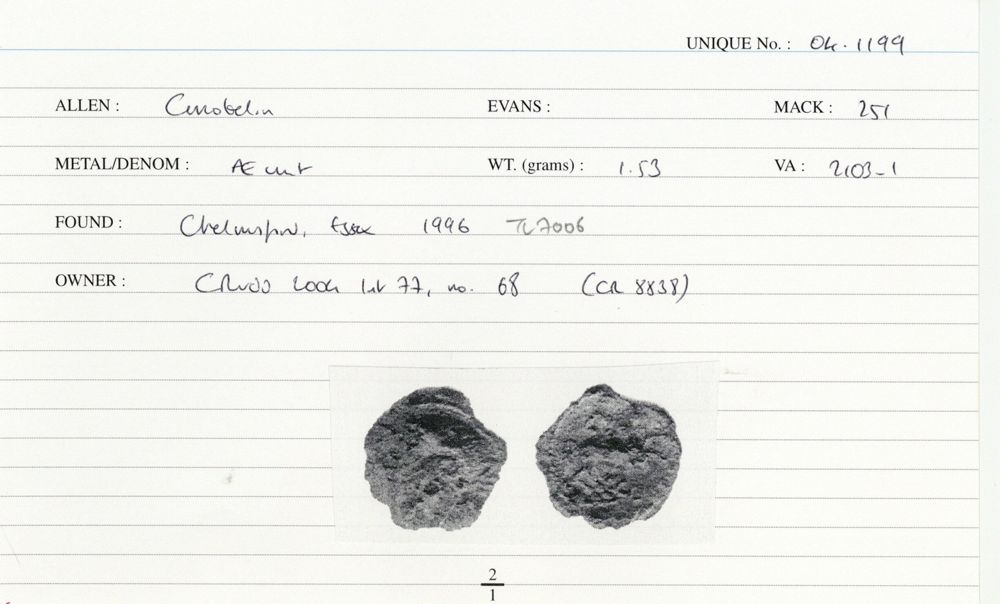 UNIQUE No. : 04.1199
ALLEN : Cunobelin EVANS : MACK : 251
METAL/DENOM : Æ unit WT. (grams) : 1.53 VA : 2103-1
FOUND : Chelmsford, Essex 1996 TL7006
OWNER : 2004 list 77, no. 68 (CR 8838)
2
1